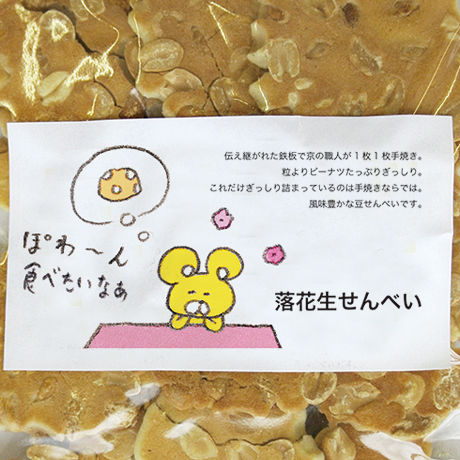 伝え継がれた鉄板で京の職人が1枚1枚手焼き。
粒よりピーナツたっぷりぎっしり。
これだけぎっしり詰まっているのは手焼きならでは。
風味豊かな豆せんべいです。
ぽわ～ん
食べたいなぁ
落花生せんべい